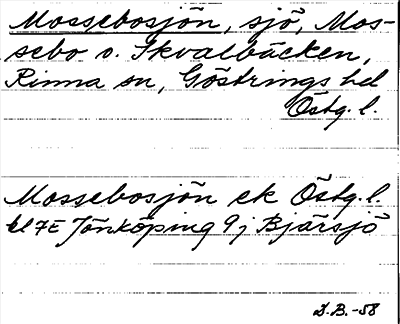 Mossebosjön, sjö, Mos-
sebo o. Skvalbäcken,
Rinna sn, Göstrings hd
Östg. l.
Mossebosjön ek Östg. l.
bl 7E Jönköping 9j Bjärsjö
I.B. -58